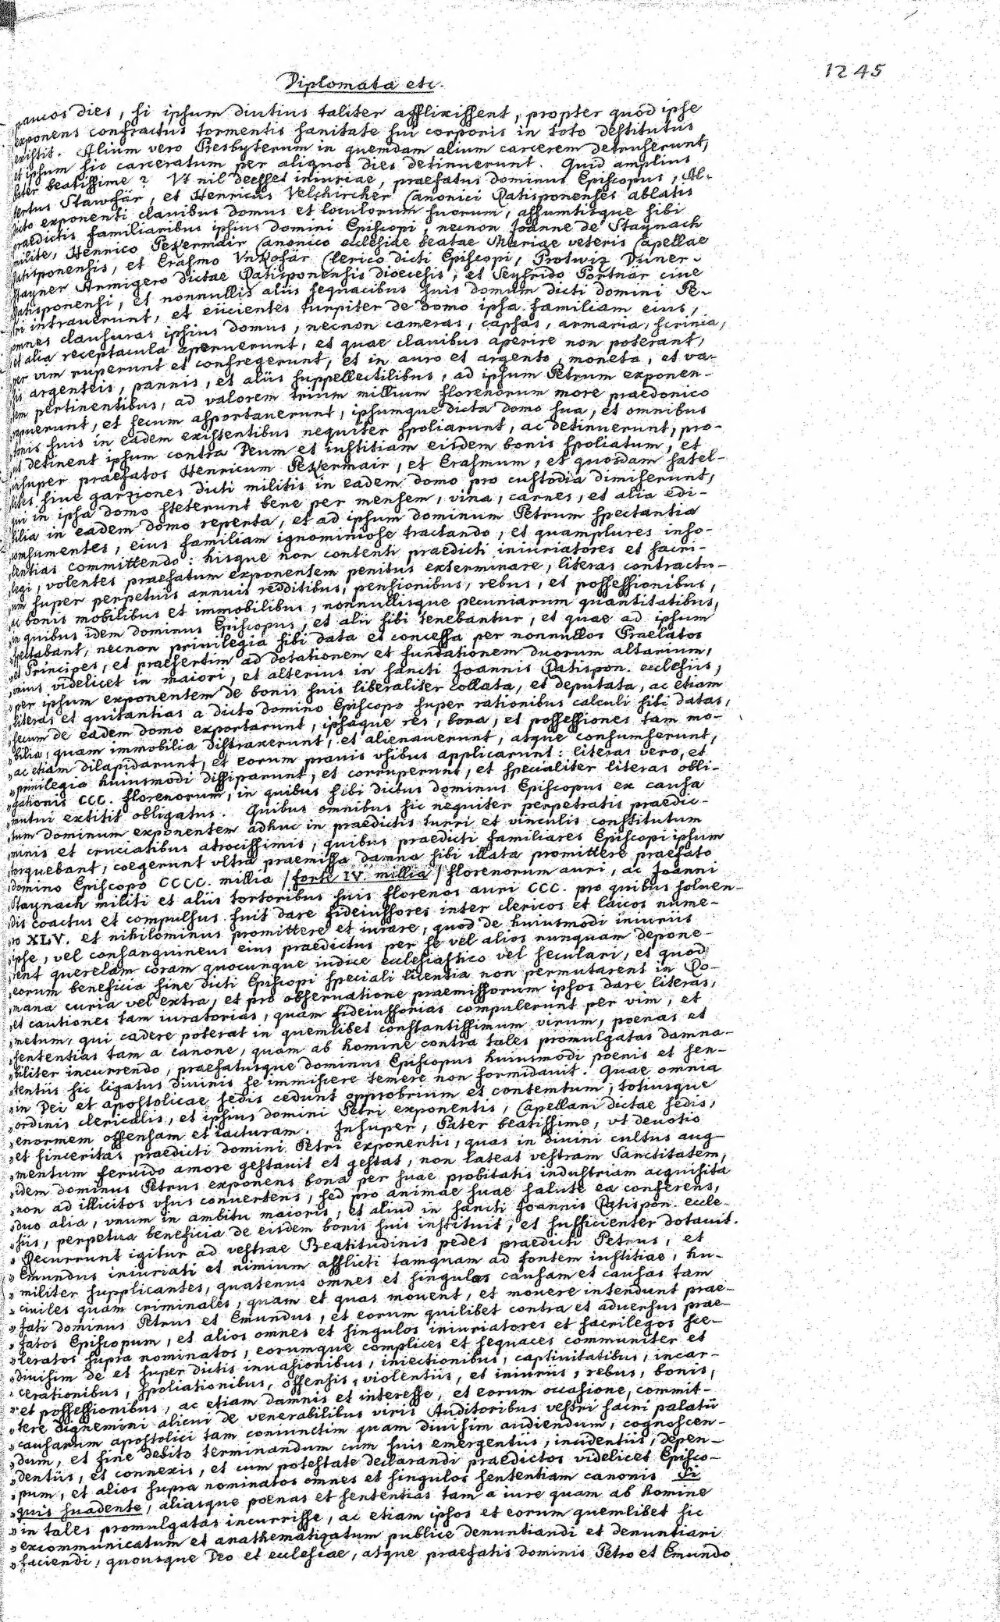 1245
Diplomata etc.
paucos dies, si ipsum diutius taliter afflixissent, propter quod ipse
exponens confractus tormentis sanitate sui corporis in toto destitutus
existit. Alium vero Presbyterum in quendam alium carcerem detruserunt,
et ipsum sic carceratum per aliquos dies detinuerunt. Quid amplius
Pater beatissime? Vt nil deesset iniuriae, praefatus dominus Episcopus, Al-
bertus Stawffär, et Henricus Velchircher Canonici Ratisponenses ablatis
dicto exponenti clauibus domus et loculorum suorum, assumtisque sibi
praedictis familiaribus ipsius domini Episcopi, necnon Joanne de Staynach
milite, Henrico Canonico ecclesiae beatae Mariae veteris Capellae
Ratisponensis, et Erasmo Clerico dicti Episcopi,
Armigero dictae Ratisponensis dioecesis, et Seyfrido Portnär ciue
Ratisponensi, et nonnullis aliis sequacibus suis domum dicti domini Pe-
tri intrauerunt, et eiicientes turpiter de domo ipsa familiam eius,
omnes clausuras ipsius domus, necnon cameras, capsas, armaria, scrinia,
et alia receptacula aperuerunt, et quae clauibus aperire non poterant,
per vim ruperunt et confregerunt, et in auro et argento, moneta, et va-
sis argenteis, pannis, et aliis suppellectilibus, ad ipsum Petrum exponen-
tem pertinentibus, ad valorem trium millium florenorum more praedonico
rapuerunt, et secum asportauerunt, ipsumque dicta domo sua, et omnibus
bonis suis in eadem existentibus nequiter spoliarunt, ac detinuerunt, pro-
ut detinent ipsum contra Deum et iustitiam eisdem bonis spoliatum, et
insuper praefatos Henricum et Erasmum, et quosdam satel-
lites siue garziones dicti militis in eadem domo pro custodia dimiserunt,
qui in ipsa domo steterunt bene per mensem, vina, carnes, et alia edi-
bilia in eadem domo reperta, et ad ipsum dominum Petrum spectantia
consumentes, eius familiam ignominiose tractando, et quamplures inso-
lentias committendo: hisque non contenti praedicti iniuriatores et sacri-
legi, volentes praefatum exponentem penitus exterminare, literas contractu-
um super perpetuis annuis redditibus, pensionibus, rebus, et possessionibus,
ac bonis mobilibus et immobilibus, nonnullisque pecuniarum quantitatibus,
in quibus idem dominus Episcopus, et alii sibi tenebantur, et quae ad ipsum
spectabant, necnon priuilegia sibi data et concessa per nonnullos Praelatos
et Principes, et praesertim ad dotationem et fundationem duorum altarium,
vnius videlicet in maiori, et alterius in sancti Joannis Ratispon. ecclesiis,
per ipsum exponentem de bonis suis liberaliter collata, et deputata, ac etiam
literas et quitantias a dicto domino Episcopo super rationibus calculi sibi datas,
secum de eadem domo exportarunt, ipsasque res, bona, et possessiones tam mo-
bilia, quam immobilia distraxerunt, et alienauerunt, atque consumserunt,
ac etiam dilapidarunt, et eorum prauis vsibus applicarunt: literas vero, et
priuilegia huiusmodi dissiparunt, et corruperunt, et specialiter literas obli-
gationis CCC. florenorum, in quibus sibi dictus dominus Episcopus ex causa
mutui extitit obligatus. Quibus omnibus sic nequiter perpetratis praedic-
tum dominum exponentem adhuc in praedictis turri et vinculis constitutum
minis et cruciatibus atrocissimis, quibus praedicti familiares Episcopi ipsum
torquebant, coegerunt vltra praemissa damna sibi illata promittere praefato
domino Episcopo CCCC. millia / forte IV millia / florenorum auri, ac Joanni
Staynach militi et aliis tortoribus suis florenos auri CCC. pro quibus soluen-
dis coactus et compulsus fuit dare fideiussores inter clericos et laicos nume-
ro XLV. et nihilominus promittere et iurare, quod de huiusmodi iniuriis
ipse, vel consanguineus eius praedictus per se vel alios nunquam depone-
rent querelam coram quocunque iudice ecclesiastico vel seculari, et quod
eorum beneficia sine dicti Episcopi speciali licentia non permutarent in Ro-
mana curia vel extra, et pro obseruatione praemissorum ipsos dare literas,
et cautiones tam iuratorias, quam fideiussorias compulerunt per vim, et
metum, qui cadere poterat in quemlibet constantissimum virum, poenas et
sententias tam a canone, quam ab homine contra tales promulgatas damna-
biliter incurrendo, praefatusque dominus Episcopus huiusmodi poenis et sen-
tentiis sic ligatus diuinis se immiscere temere non formidauit. Quae omnia
in Dei et apostolicae sedis cedunt opprobrium et contemtum, totiusque
ordinis clericalis, et ipsius domini Petri exponentis, Capellani dictae sedis,
enormem offensam et iacturam. Insuper, Pater beatissime, vt deuotio
et sinceritas praedicti domini Petri exponentis, quas in diuini cultus aug-
mentum feruido amore gestauit et gestat, non lateat vestram Sanctitatem,
idem dominus Petrus exponens bona per suae probitatis industriam acquisita
non ad illicitos vsus conuertens, sed pro animae suae salute ea conferens,
duo alia, vnum in ambitu maioris, et aliud in sancti Joannis Ratispon. eccle-
siis, perpetua beneficia de eisdem bonis suis instituit, et sufficienter dotauit.
Recurrunt igitur ad vestrae Beatitudinis pedes praedicti Petrus, et
Emundus iniuriati et nimium afflicti tamquam ad fontem iustitiae, hu-
militer supplicantes, quatenus omnes et singulas causam et causas tam
ciuiles quam criminales, quam et quas mouent, et mouere intendunt prae-
fati dominus Petrus et Emundus, et eorum quilibet contra et aduersus prae-
fatos Episcopum, et alios omnes et singulos iniuriatores et sacrilegos sce-
leratos supra nominatos, eorumque complices et sequaces communiter et
diuisim de et super dictis inuasionibus, iniectionibus, captiuitatibus, incar-
cerationibus, spoliationibus, offensis, violentiis, et iniuriis, rebus, bonis,
et possessionibus, ac etiam damnis et interesse, et eorum occasione, commit-
tere dignemini alicui de venerabilibus viris Auditoribus vestri sacri palatii
causarum apostolici tam coniunctim quam diuisim audiendum, cognoscen-
dum, et fine debito terminandum cum suis emergentiis, incidentiis, depen-
dentiis, et connexis, et cum potestate declarandi praedictos videlicet Episco-
pum, et alios supra nominatos omnes et singulos sententiam canonis Si
quis suadente, aliasque poenas et sententias tam a iure quam ab homine
in tales promulgatas incurrisse, ac etiam ipsos et eorum quemlibet sic
excommunicatum et anathematizatum publice denuntiandi et denuntiari
faciendi, quousque Deo et ecclesiae, atque praefatis dominis Petro et Emundo